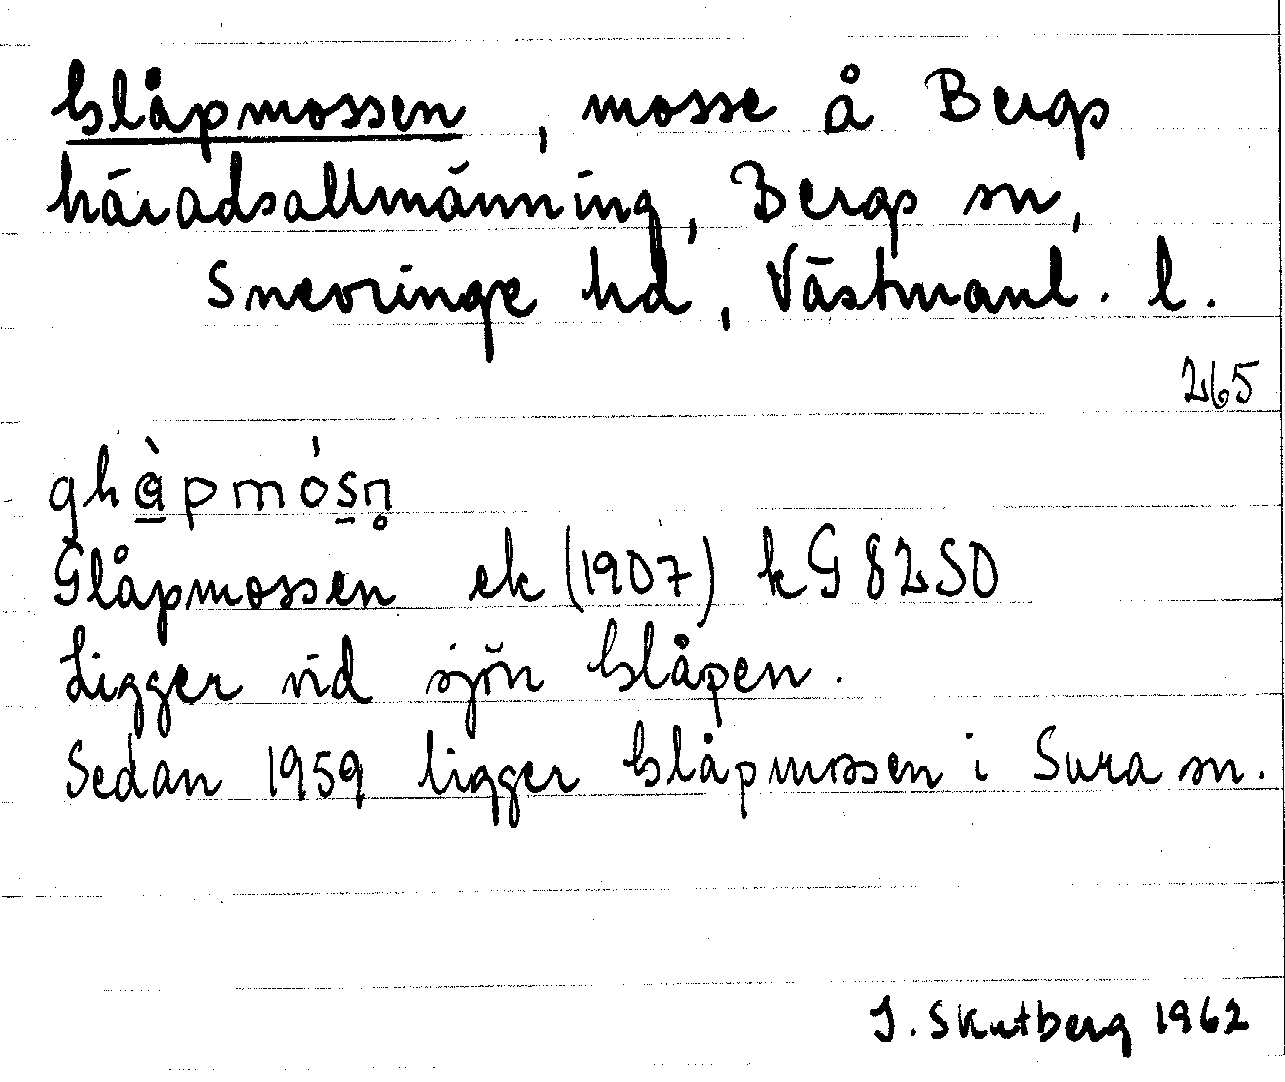 Glåpmossen, mosse å Bergs
häradsallmänning, Bergs sn,
Snevringe hd, Västmanl. l.
265
Glåpmossen ek (1907) kG 8250
Ligger vid sjön Glåpen.
Sedan 1959 ligger Glåpmossen i Sura sn.
J. Skutberg 1962